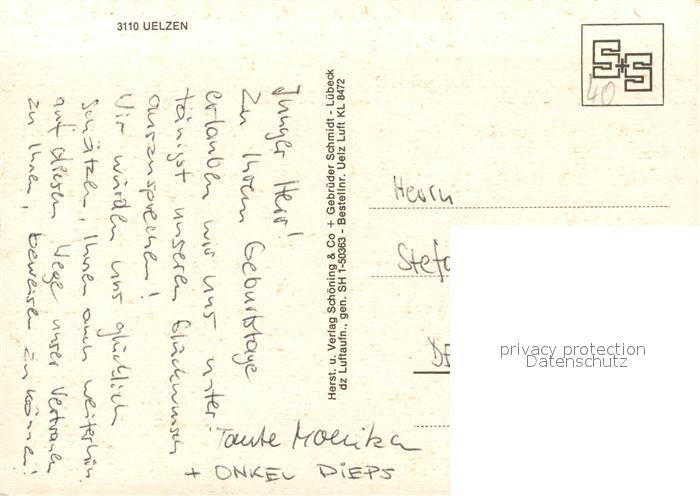 3110 UELZEN
Junger Herr!
Zu Ihrem Geburtstage
erlauben wir uns unter-
tänigst unseren Glückwunsch
auszusprechen!
Wir würden uns glücklich
schätzen, Ihnen auch weiterhin
auf diesem Wege unser Vertrauen
zu Ihnen, beweisen zu können!
Tante Monika
+ ONKEL DIEPS
Herst. u. Verlag Schöning & Co + Gebrüder Schmidt - Lübeck
dz Luftaufn., gen. SH 1-50363 - Bestellnr. Uelz Luft KL 8472
S+S
40
Herrn
Stefa
privacy protection
Datenschutz